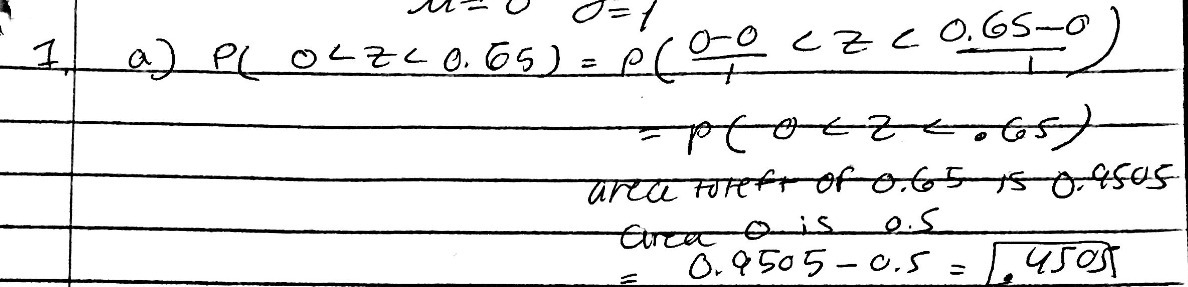 μ=0 σ=1
1. a) P( 0<Z<0.65) = P( 0-0/1 < Z < 0.65-0/1 )
= P( 0 < Z < .65)
area to left of 0.65 is 0.9505
area 0 is 0.5
= 0.9505-0.5 = .4505